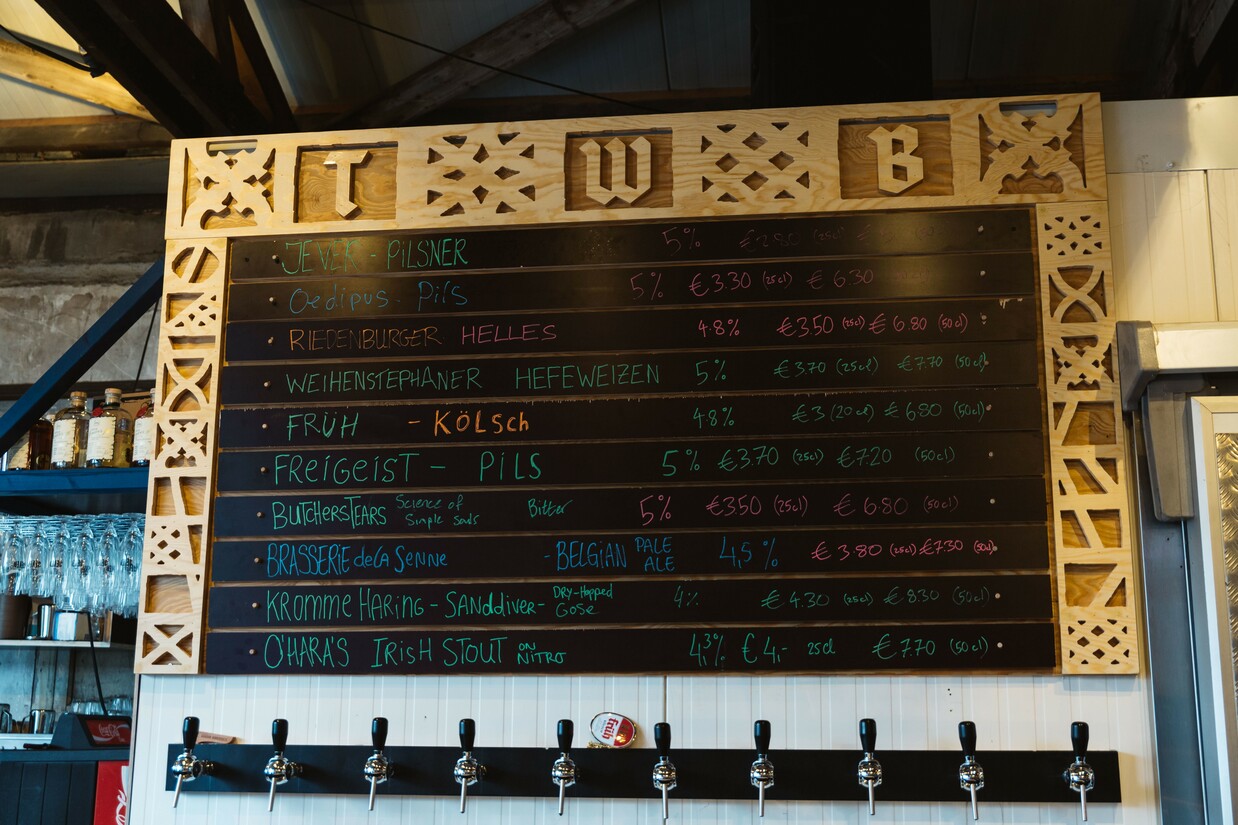 T W B
JEVER - PILSNER 5% €2.80 (25cl) €
Oedipus - Pils 5% €3.30 (25cl) €6.30
RIEDENBURGER HELLES 4.8% €3.50 (25cl) €6.80 (50cl)
WEIHENSTEPHANER HEFEWEIZEN 5% €3.70 (25cl) €7.70 (50cl)
FRÜH - KÖLSCH 4.8% €3 (20cl) €6.80 (50cl)
FREIGEIST - PILS 5% €3.70 (25cl) €7.20 (50cl)
BUTCHERSTEARS Science of Simple Bitter 5% €3.50 (25cl) €6.80 (50cl)
BRASSERIE de la Senne - BELGIAN PALE ALE 4,5% €3.80 (25cl) €7.30 (50cl)
KROMME HARING - SANDDIVER - DRY-HOPPED GOSE 4% €4.30 (25cl) €8.30 (50cl)
O'HARA'S IRISH STOUT ON NITRO 4,3% €4,- 25cl €7.70 (50cl)
früh